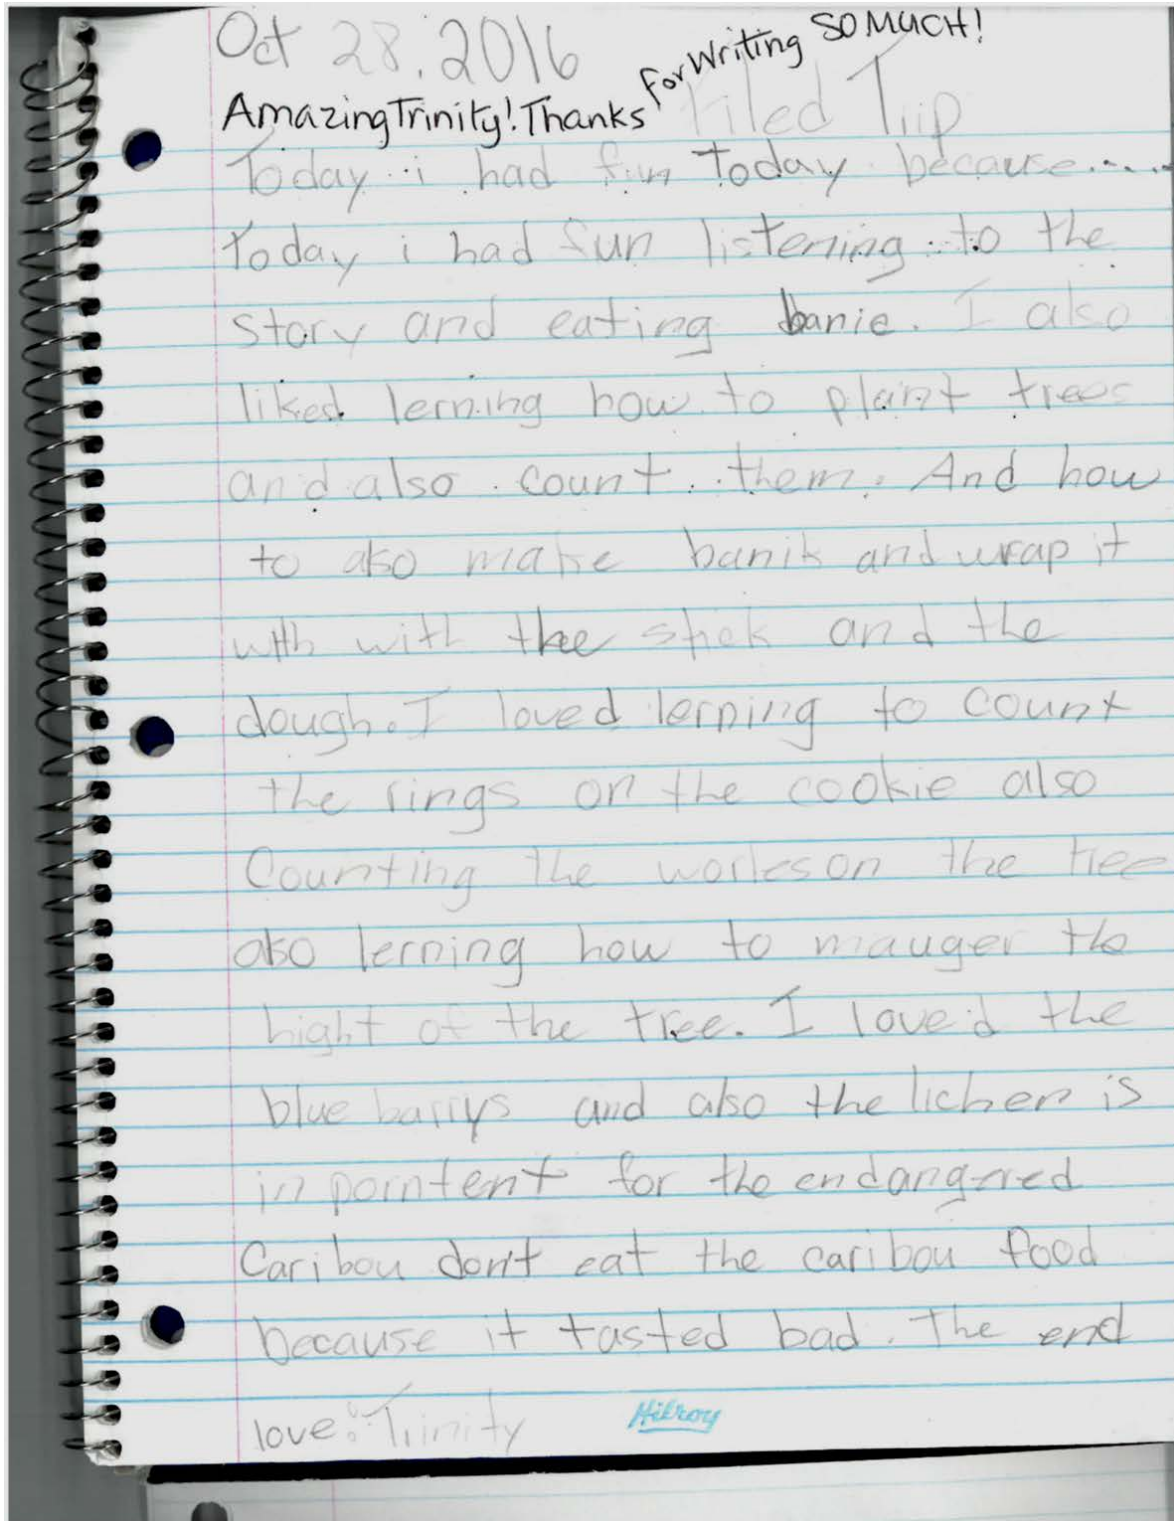 Oct 28, 2016
for Writing SO MUCH!
Amazing Trinity! Thanks
Filed Trip
Today i had fun Today because.....
Today i had fun listening to the
story and eating banie. I also
liked lerning how to plaint trees
and also count them. And how
to also make banik and wrap it
with with the stick and the
dough. I loved lerning to count
the rings on the cookie also
Counting the workes on the tree
also lerning how to mauger the
hight of the tree. I loved the
blue barrys and also the lichen is
inporntent for the endangered
Caribou don't eat the caribou food
because it tasted bad. The end
love: Trinity
Hilroy